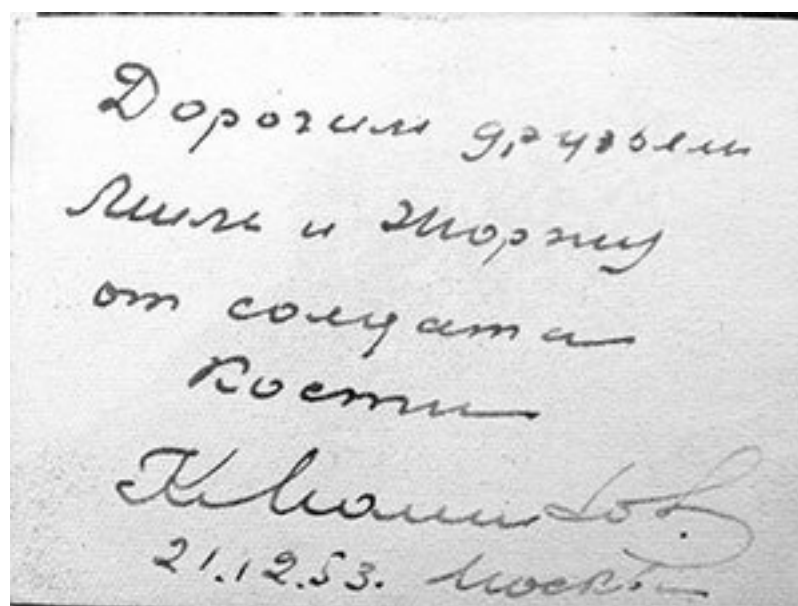 Дорогим друзьям
Лиле и Жоржу
от солдата
Кости
21.12.53. Москва